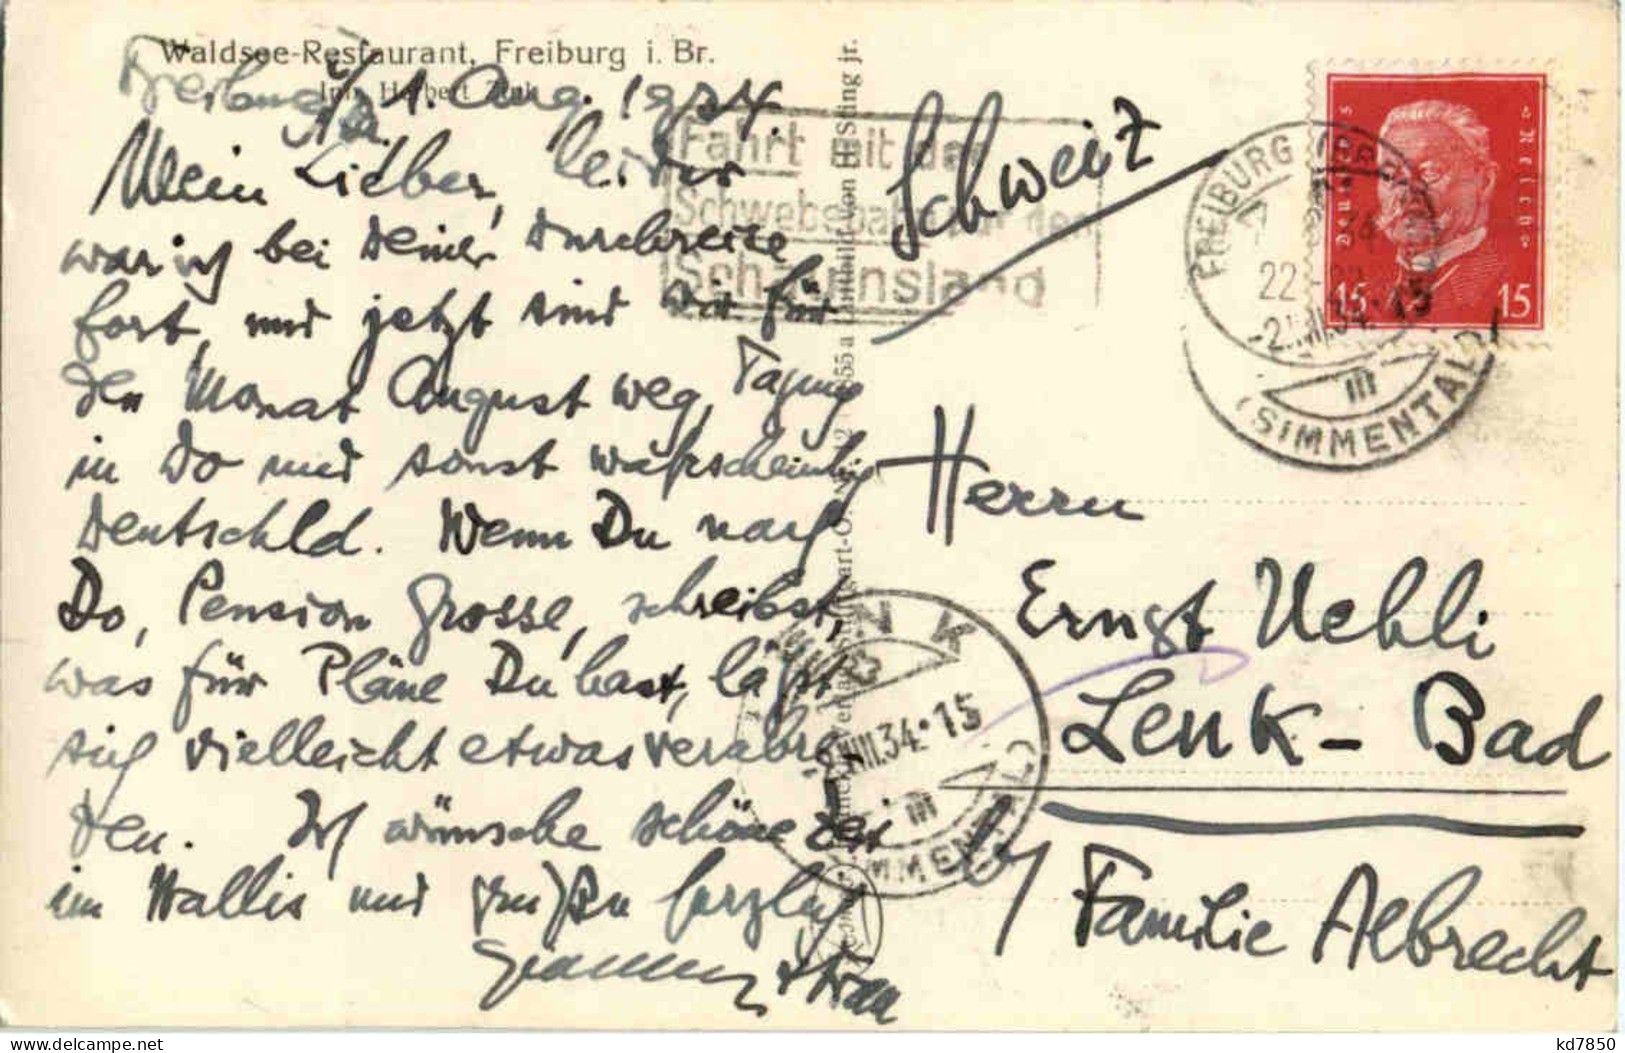 Waldsee-Restaurant, Freiburg i. Br.
Inh. Herbert Zink
Freiburg i/Br. 1. Aug. 1934
Mein Lieber, leider
war ich bei Deiner Durchreise
fort, und jetzt sind wir für
den Monat August weg, Tagung
in Do und sonst wahrscheinlich
Deutschld. Wenn Du nach
Do, Pension Grosse, schreibst,
was für Pläne Du hast, läßt
sich vielleicht etwas verabre
den. Ich wünsche schöne Zeit
im Wallis und grüßen herzlich
+ Frau
Fahrt mit der
Schwebebahn auf den
Schauinsland
Schweiz
Deutsches Reich
15 15
FREIBURG (BREISGAU)
22
-2.VIII.34.15
III
(SIMMENTAL)
Herrn
Ernst Uehli
Lenk-Bad
b/ Familie Albrecht
LENK
-2.VIII.34.15
III
(SIMMENTAL)
kd7850